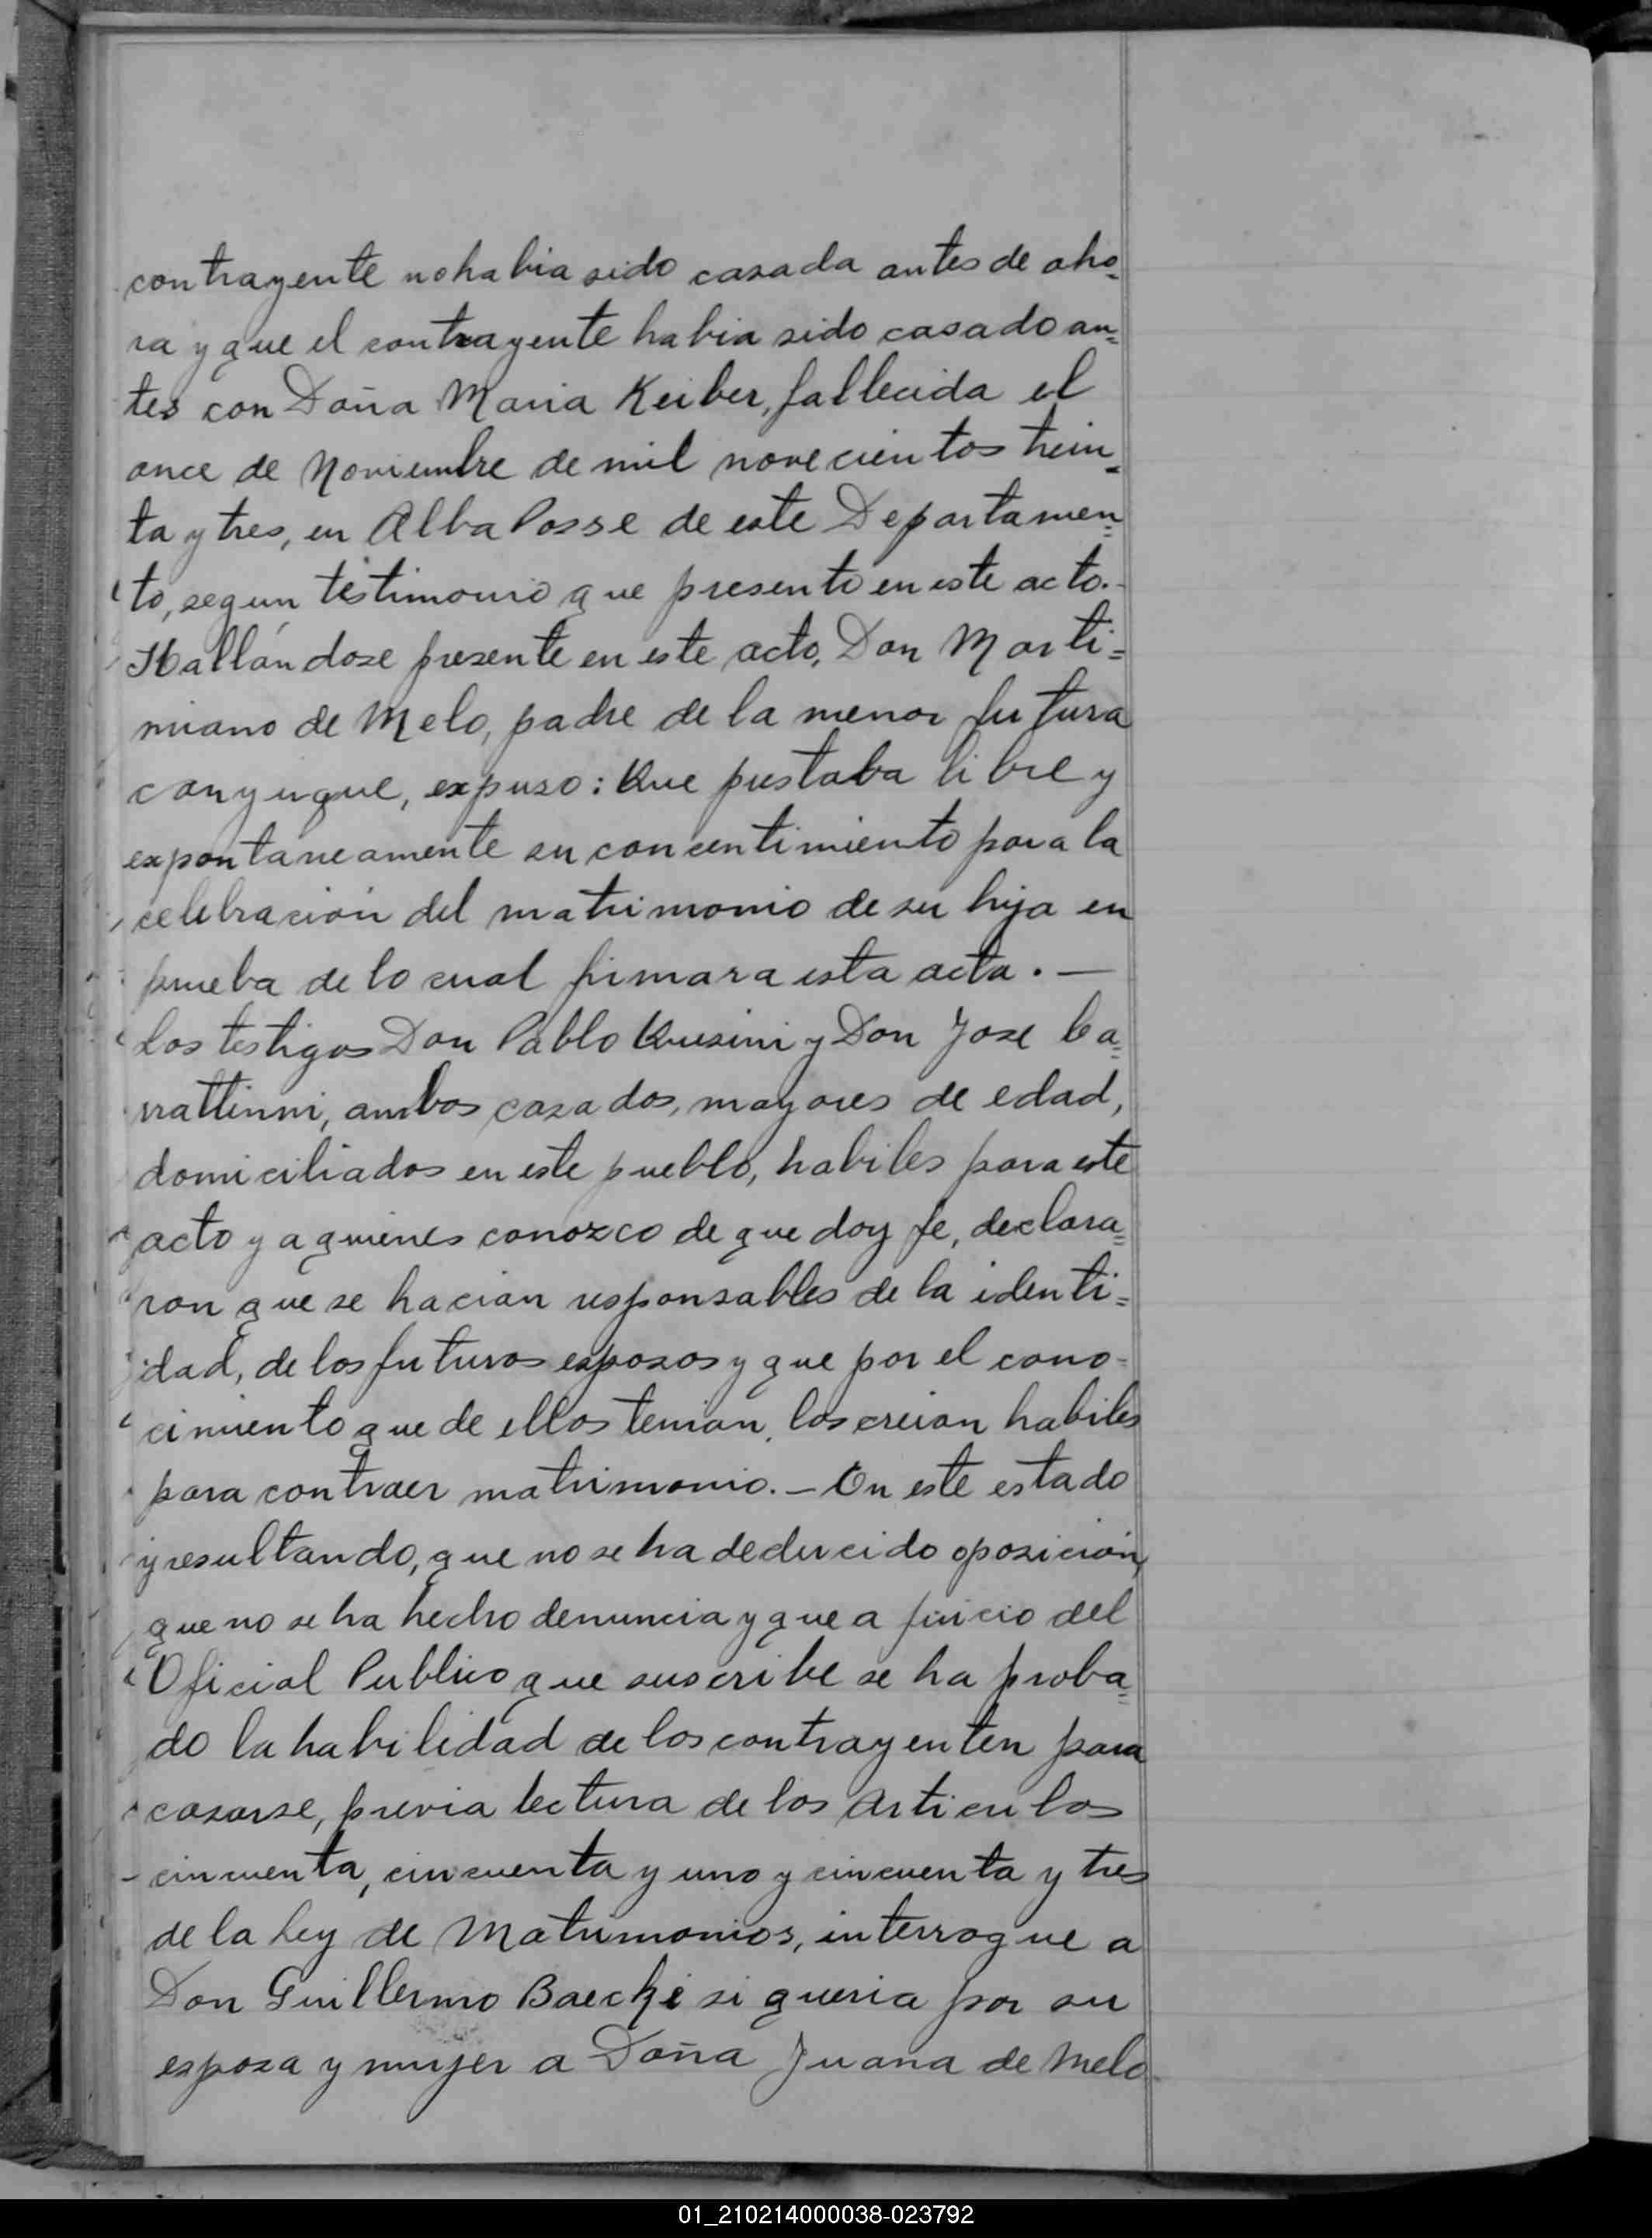 contrayente no habia sido casada antes de aho=
ra y que el contrayente habia sido casado an=
tes con Doña Maria Keiber, fallecida el
once de Noviembre de mil novecientos trein=
ta y tres, en Alba Posse de este Departamen=
to, segun testimonio que presento en este acto.-
Hallándose presente en este acto, Don Marti=
niano de Melo, padre de la menor futura
conyugue, expuso: Que prestaba libre y
expontaneamente su concentimiento para la
celebracion del matrimonio de su hija en
prueba de lo cual firmara esta acta. —
Los testigos Don Pablo Kusini y Don Jose Ca=
rattinni, ambos casados, mayores de edad,
domiciliados en este pueblo, habiles para este
acto y a quienes conozco de que doy fe, declara=
ron que se hacian responsables de la identi=
dad, de los futuros esposos y que por el cono-
cimiento que de ellos tenian, los creian habiles
para contraer matrimonio. — En este estado
y resultando, que no se ha deducido oposicion,
que no se ha hecho denuncia y que a juicio del
Oficial Publico que suscribe se ha proba=
do la habilidad de los contrayenten para
casarse, previa lectura de los Articulos
cincuenta, cincuenta y uno y cincuenta y tres
de la Ley de Matrimonios, interrogue a
Don Guillermo Baecke si queria por su
esposa y mujer a Doña Juana de Melo
01_210214000038-023792